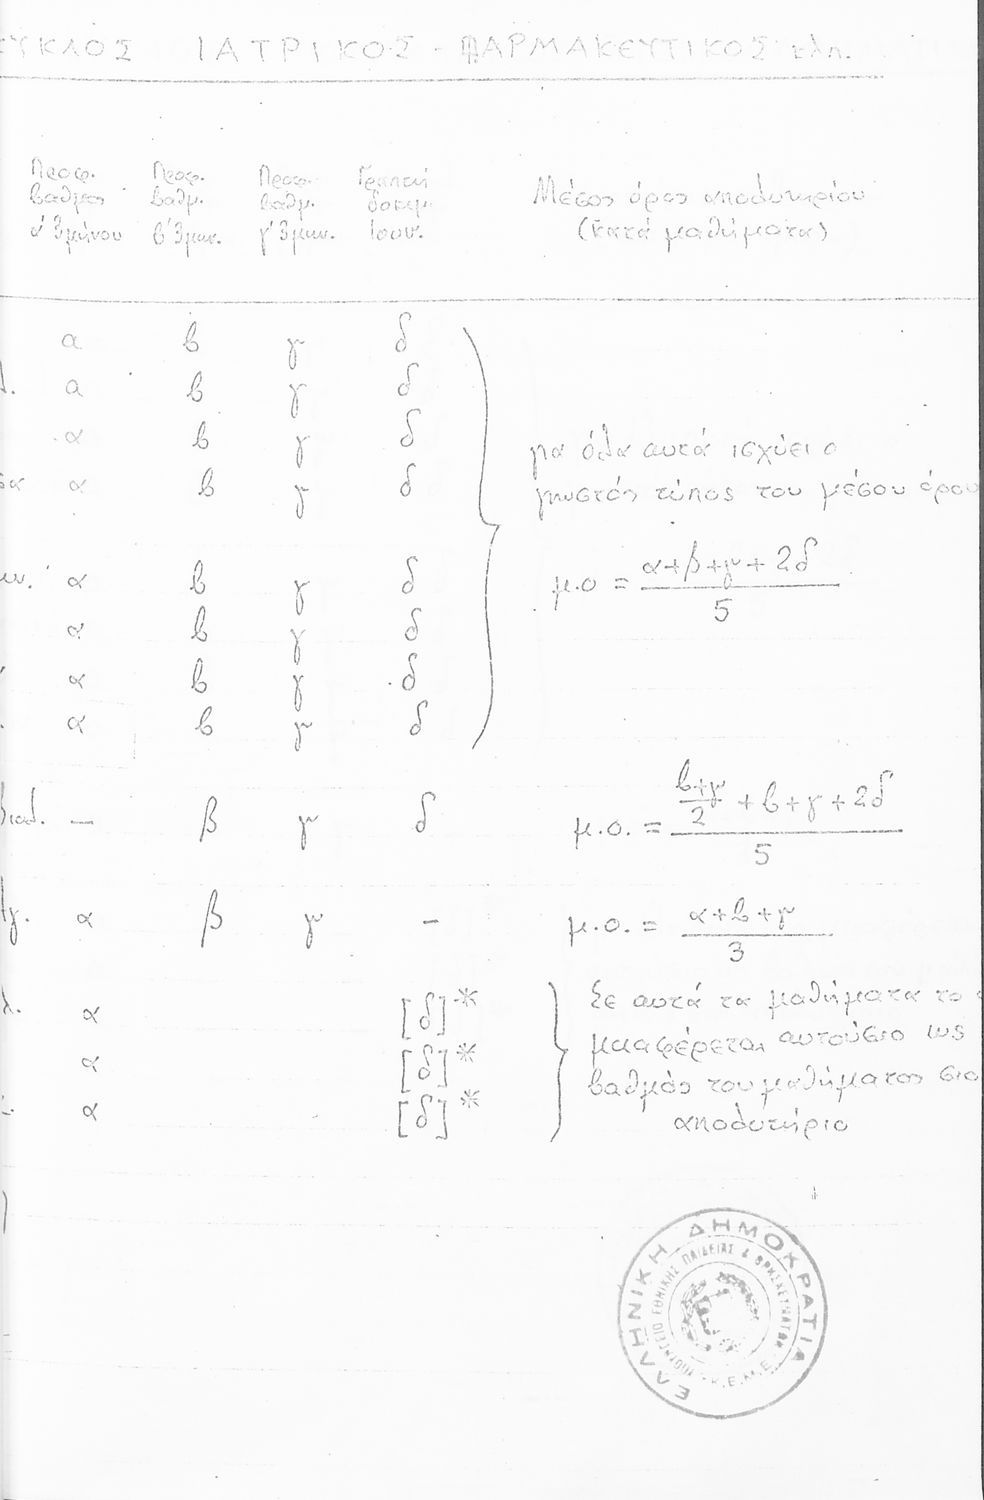 ΚΥΚΛΟΣ ΙΑΤΡΙΚΟΣ - ΦΑΡΜΑΚΕΥΤΙΚΟΣ κλπ.
Προφ. βαθμός α' 3μήνου
Προφ. βαθμ. β' 3μην.
Προφ. βαθμ. γ' 3μην.
Γραπτή δοκιμ. Ιουν.
Μέσος όρος απολυτηρίου
(κατά μαθήματα)
α β γ δ
α β γ δ
α β γ δ
α β γ δ
για όλα αυτά ισχύει ο
γνωστός τύπος του μέσου όρου
α β γ δ
μ.ο = (α+β+γ+2δ)/5
α β γ δ
α β γ δ
α β γ δ
— β γ δ μ.ο. = ((β+γ)/2 + β+γ+2δ)/5
α β γ - μ.ο. = (α+β+γ)/3
α [δ]*
α [δ]*
α [δ]*
Σε αυτά τα μαθήματα το
μεταφέρεται αυτούσιο ως
βαθμός του μαθήματος στο
απολυτήριο
ΕΛΛΗΝΙΚΗ ΔΗΜΟΚΡΑΤΙΑ
ΥΠΟΥΡΓΕΙΟ ΕΘΝΙΚΗΣ ΠΑΙΔΕΙΑΣ & ΘΡΗΣΚΕΥΜΑΤΩΝ
Κ.Ε.Μ.Ε.